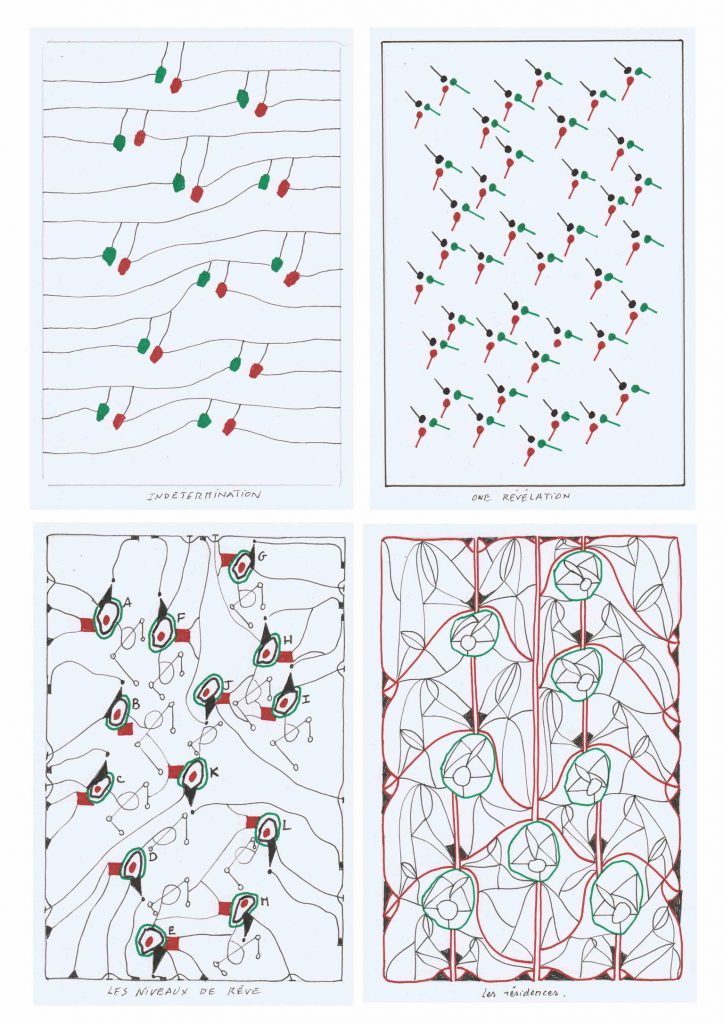 INDETERMINATION
UNE RÉVÉLATION
G
A
F
H
J
I
B
K
C
L
D
M
E
LES NIVEAUX DE RÊVE
Les résidences.